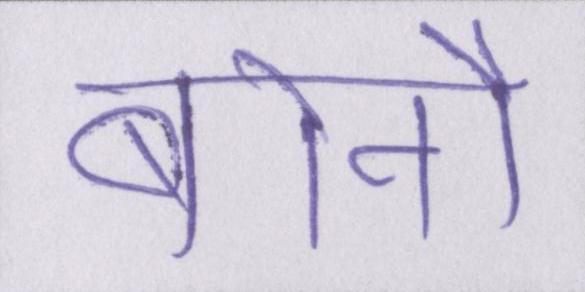 बोनौ